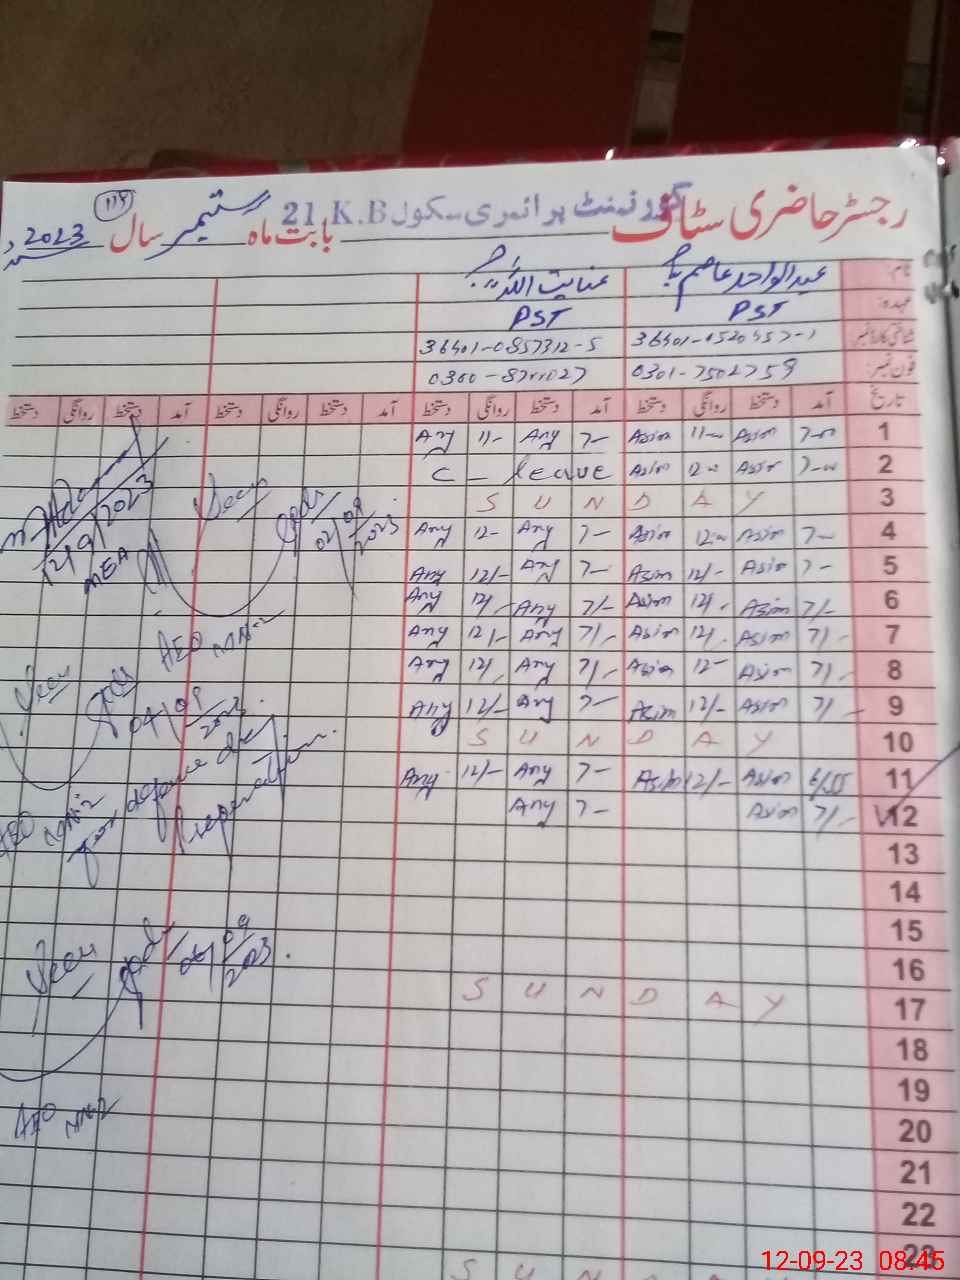 رجسٹر حاضری سٹاف گورنمنٹ پرائمری سکول 21.K.B بابت ماہ ستمبر سال 2023
118
نام: عبدالواحد عاصم عنایت اللہ
عہدہ: PST PST
شناختی کارڈ نمبر 36401-0857312-5
فون نمبر: 0301-7502759
تاریخ آمد دستخط روانگی دستخط آمد دستخط روانگی دستخط آمد دستخط روانگی دستخط آمد دستخط روانگی دستخط
Any 11- Any 7- Asim 11- Asim 7- 1
C - leave Asim 12- Asim 7- 2
S U N D A Y 3
Any 12- Any 7- Asim 12- Asim 7- 4
Any 12/- Any 7- Asim 12/- Asim 7- 5
Any 12/. Any 7/- Asim 12/. Asim 7/- 6
Any 12/- Any 7/- Asim 12/. Asim 7/- 7
Any 12/ Any 7/- Asim 12- Asim 7/- 8
Any 12/- Any 7- Asim 12/- Asim 7/- 9
S U N D A Y 10
Any 12/- Any 7- Asim 12/- Asim 6/55 11
Any 7- Asim 7/- 12
13
14
15
16
S U N D A Y 17
18
19
20
21
22
S U N D 23
12/9/2023
MEA
Seen
02/09/2023
AEO
Seen
04/09/2023
AEO
for defence day
Preparation.
Seen
06/09/2023.
AEO
12-09-23 08:45